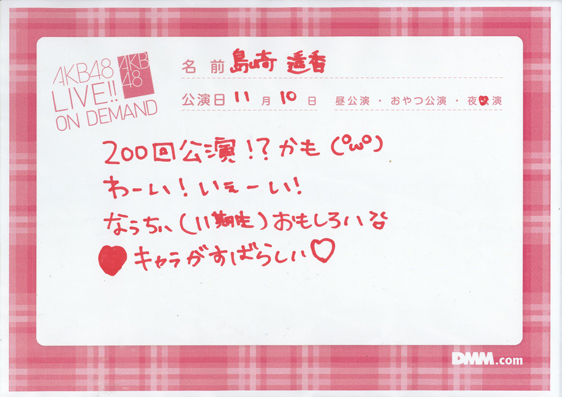 AKB48
LIVE!!
ON DEMAND
AKB
48
名前 島崎 遥香
公演日 11月10日 昼公演・おやつ公演・夜公演
200回公演!?かも(°ω°)
わーい!いぇーい!
なっちぃ(11期生)おもしろい
♥キャラがすばらしい♡
DMM.com